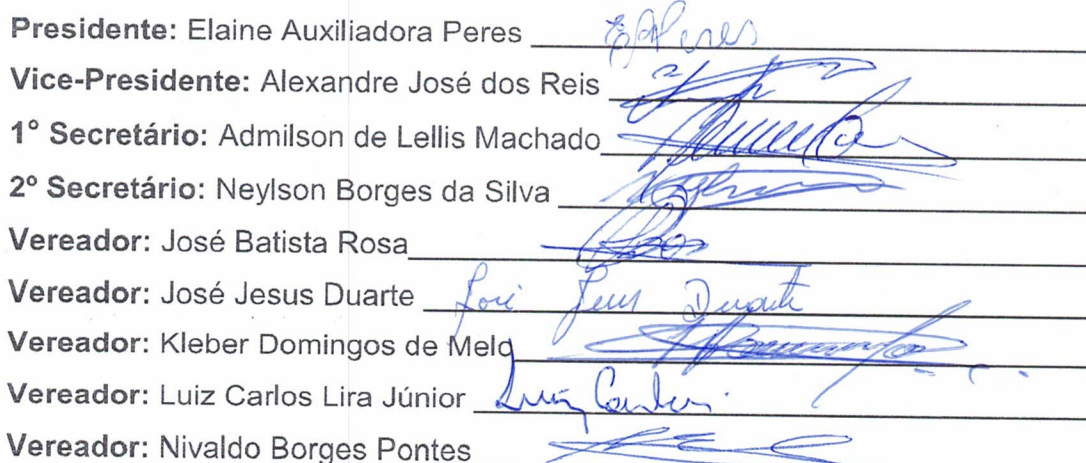 Presidente: Elaine Auxiliadora Peres EAPeres
Vice-Presidente: Alexandre José dos Reis
1° Secretário: Admilson de Lellis Machado
2º Secretário: Neylson Borges da Silva
Vereador: José Batista Rosa
Vereador: José Jesus Duarte José Jesus Duarte
Vereador: Kleber Domingos de Melo
Vereador: Luiz Carlos Lira Júnior Luiz Carlos
Vereador: Nivaldo Borges Pontes